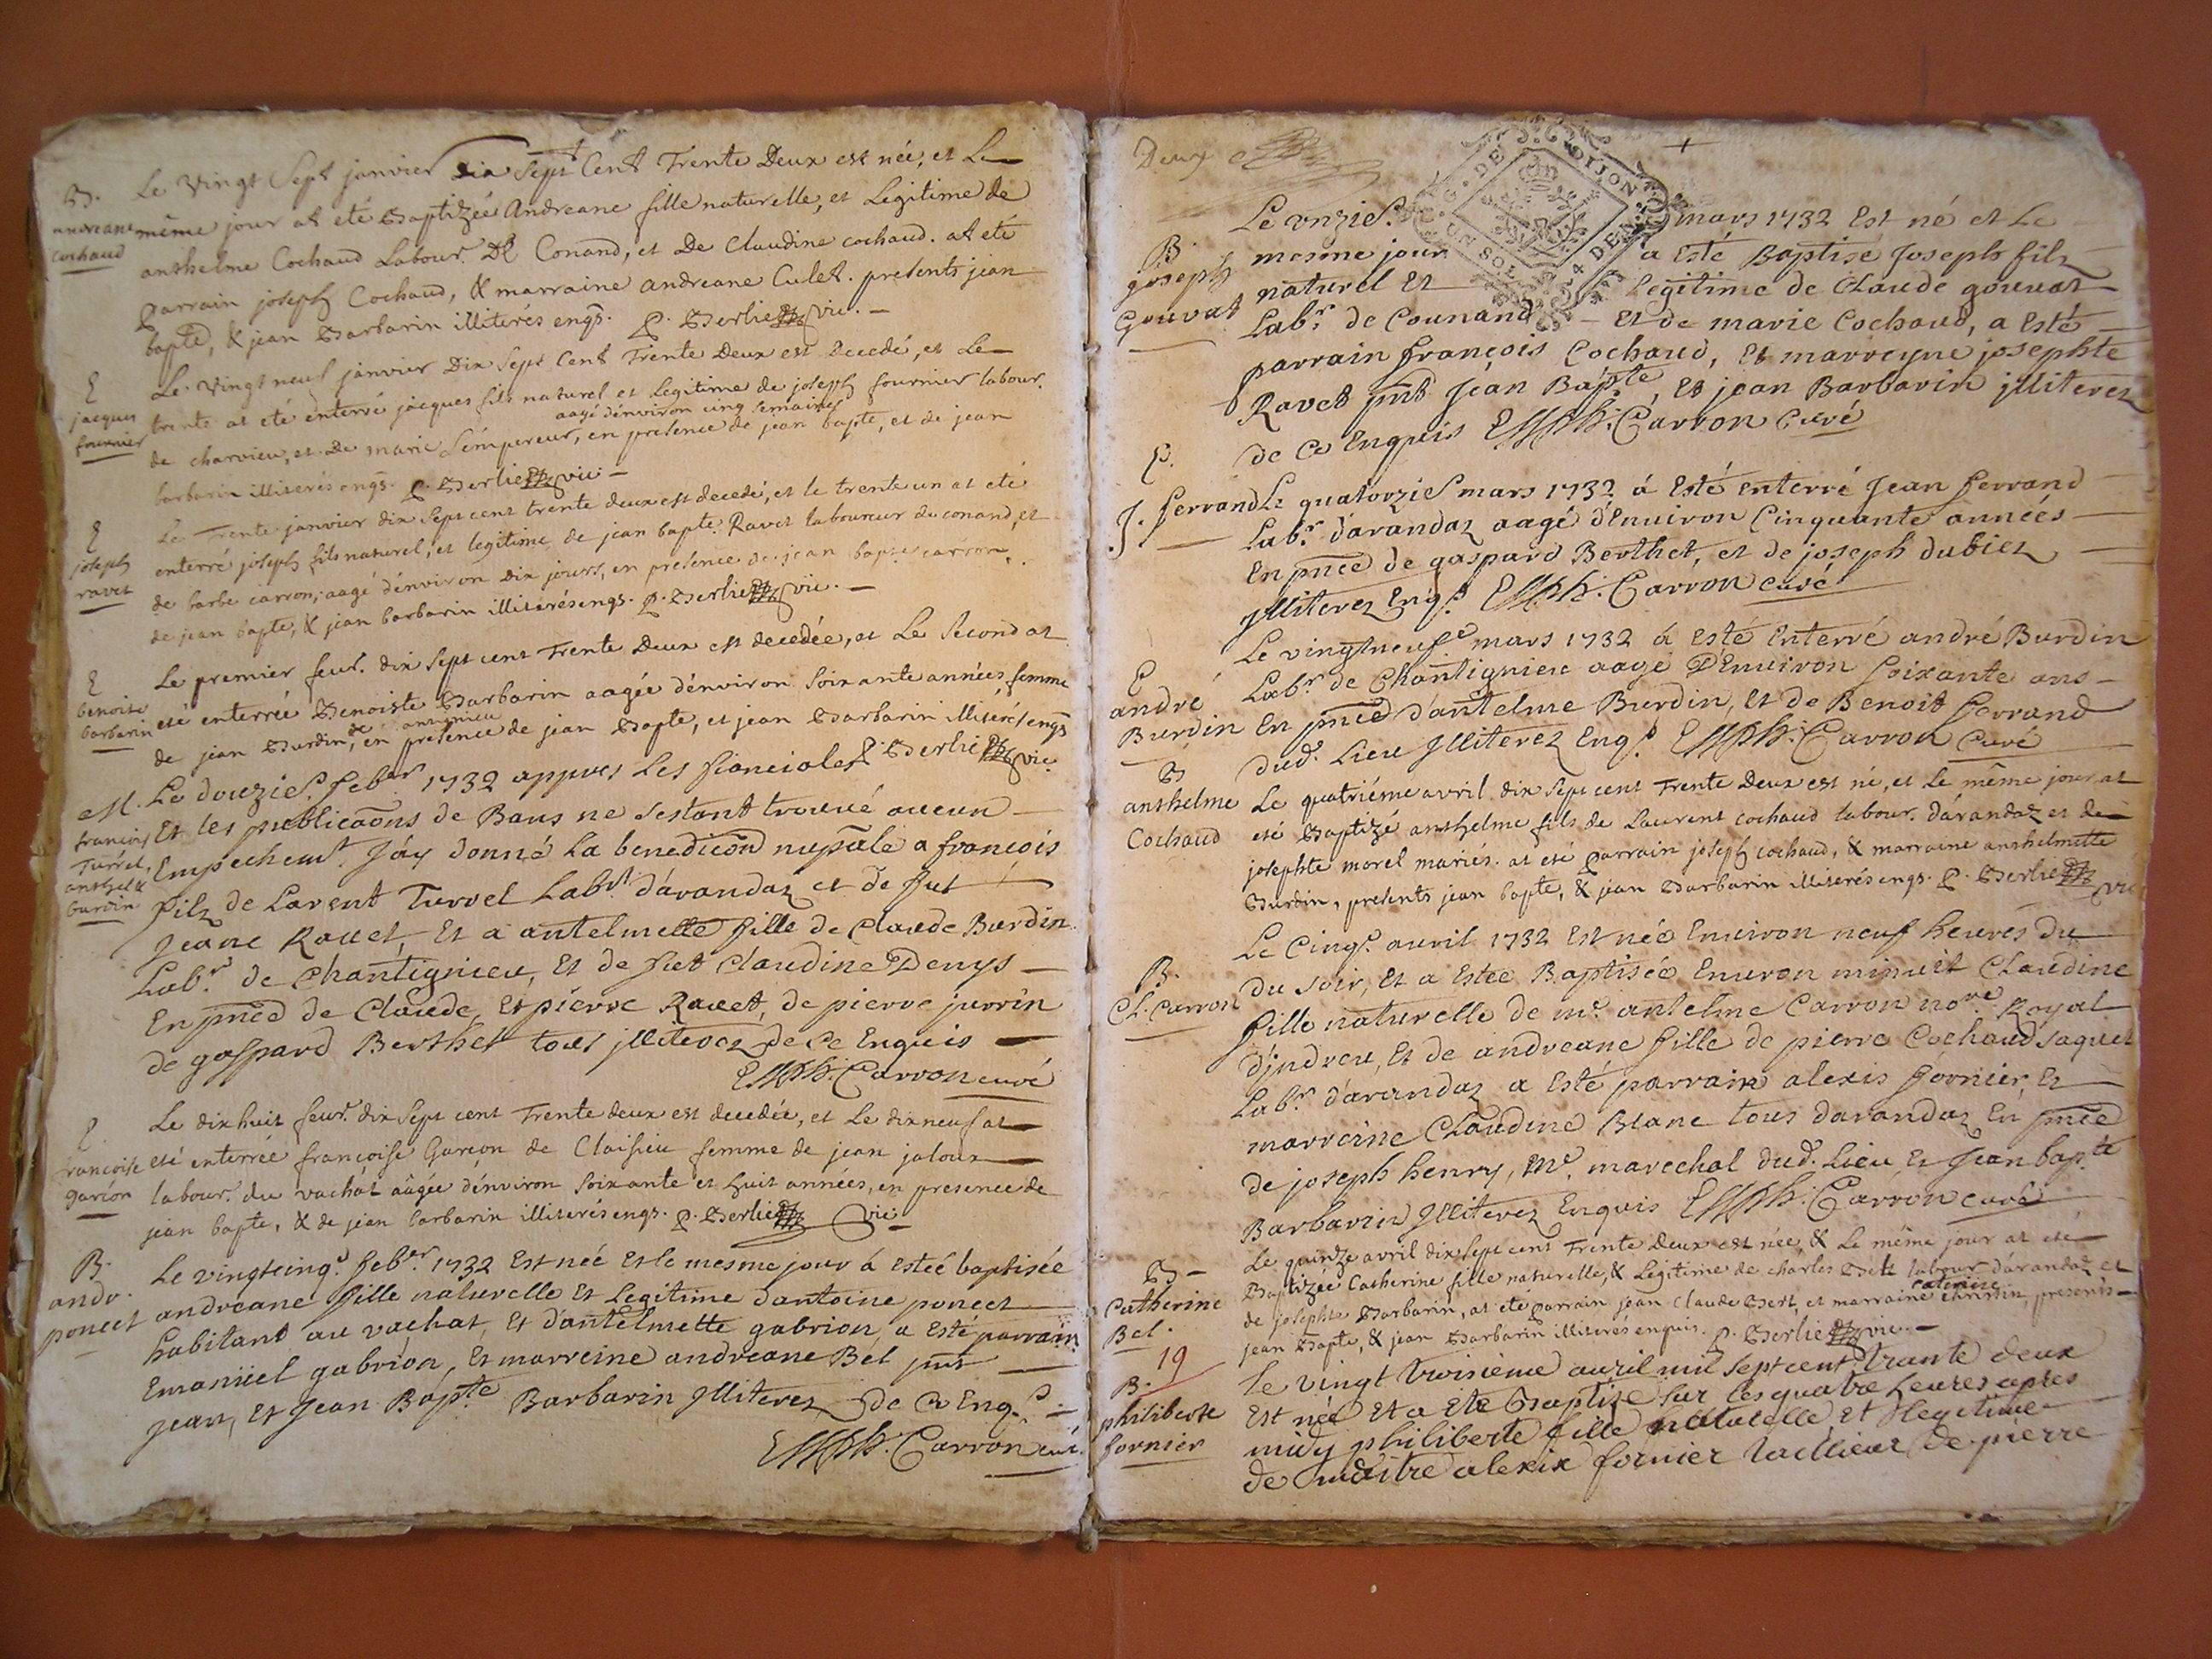 B.
andreane
cochaud
Le Vingt Sept janvier Dix Sept Cent Trente Deux est née, et Le
même jour at eté Baptizée Andreane fille naturelle, et Legitime de
anthelme Cochaud Labour. De Conand, et De Claudine cochaud. at eté
parrain joseph Cochaud, & marraine andreane Culet. presents jean
bapte, & jean Barbarin illiterés engs. P. Berlie vic.
E
jacques
fournier
Le Vingt neuf janvier Dix Sept Cent Trente Deux est Decedé, et Le
trente at eté enterré jacques fils naturel et Legitime de joseph fournier labour.
aagé dénviron cinq Semaines
de charvieu, et De marie Lémpereur, en presence de jean bapte, et de jean
barbarin illiterés engs. P. Berlie vic
E
joseph
ravet
Le Trente janvier dix Sept cent trente deux est decedé, et le trente un at eté
enterré joseph fils naturel, et legitime de jean bapte Ravet laboureur de conand, et
de barbe carron, aagé dénviron Dix jours, en presence de jean bapte carron,
de jean bapte, & jean barbarin illiterés engs. P. Berlie vic.
E
benoite
barbarin
Le premier feur. dix Sept cent Trente Deux est decedée, et Le Second at
eté enterrée Benoiste Barbarin aagée dénviron Soixante années, femme
de jean Burdin, en presence de jean Bapte, et jean Barbarin illiterés engs
P. Berlie vic.
M.
francois
Turrel,
anthel &
burdin
Le douzie. febvr 1732 appres Les fianciales
Et les publicaôns de Bans ne sestant trouué aucun
Empechemt. Jáy donné La benediction nupãle a francois
filz de Larent Turrel Labr. dárandaz et de fut
Jeane Rauet, Et a antelmette fille de Claude Burdin
Labr. de Chantignieu, Et de fut Claudine Denys
En pnce de Claude, Et pierre Rauet, de pierre jurrin
de gaspard Berthet tous jlliterez de Ce Enquis
Carron curé
E.
francoise
garcon
Le dix huit feur. dix Sept cent Trente deux est decedée, et Le dix neuf at
eté enterrée francoise Garcon de Claisieu femme de jean jaloux
labour. du vachat aagée dénviron Soixante et huit années, en presence de
jean bapte, & de jean barbarin illiterés engs. P. Berlie vic
B.
andr.
poncet
Le vingtcinq. febvr. 1732 Est née Et le mesme jour á estéé baptisée
andreane fille naturelle Et Legitime dantoine poncet
habitant au vachat, Et dántelmette gabrion, a Esté parrain
Emanüel gabrion, Et marreine andreane Bel pnt
jean, Et Jean Bápte Barbarin jlliterez De Ce Enq.
Carron curé.
Deux
G. DE DIJON
UN SOL 4 DEN
B
joseph
Gouvat
Le vnzie. mars 1732 Est né et Le
mesme jour a Esté Baptisé Joseph filz
naturel Et Legitime de Claude gouuat
Labr. de Counand Et de marie Cochaud, a Esté
parrain françois Cochaud, Et marreyne josephte
Ravet pnt Jean Bápte, Et jean Barbarin jlliterez
de Ce Enquis Carron Curé
E.
J. ferrand
Le quatorzie mars 1732 á Esté enterré Jean ferrand
Labr. dárandaz aagé dEnuiron Cinquante années
En pnce de gaspard Berthet, et de joseph dubiez
jlliterez Enqs Carron curé
E
andré
Burdin
Le vingtneuf.e mars 1732 á Esté Enterré andré Burdin
Labr. de Chantignieu aagé DEnuiron Soixante ans
En pnce dántelme Burdin, Et de Benoit ferrand
dud. Lieu jlliterez Enqs Carron curé
B
anthelme
Cochaud
Le quatriéme avril dix Sept cent Trente Deux est né, et Le même jour at
eté Baptizé anthelme fils de Laurent cochaud labour. dárandaz et de
josephte morel mariés. at eté parrain joseph cochaud, & marraine anthelmette
Burdin, presents jean bapte, & jean Barbarin illiterés engs. P. Berlie vic
B.
Cl. Carron
Le Cinqe. auril 1732 Est née Enuiron neuf heures du
du soir, Et a Estée Baptisée Enuiron minuit Claudine
fille naturelle de me. antelme Carron nore. Royal
djndrieu, Et de andreane fille de pierre Cochaud saquet
Labr. dárandaz a Esté parrain alexis fornier, Et
marreine Claudine Blanc tous darandaz En pnce
de joseph henry, me. marechal dud. Lieu Et Jean bapte
Barbarin jlliterez Enquis Carron curé
B
Catherine
Bel.
Le quinze avril dix Sept cent Trente Deux est née, & Le même jour at eté
Baptizée Catherine fille naturelle, & Legitime de charles Bell labour dárandaz et
de josephte Barbarin, at eté parrain jean claude Bert, et marraine caterine christin, presents
jean Bapte, & jean Barbarin illiterés enquis. P. Berlie vic.
19
B.
philiberte
fornier
Le vingt troisieme auril mil sept cent trante deux
Est née Et a eté Baptize sur les quatre heures apres
midy philiberte fille naturelle Et legetime
de maitre alexix fornier tallieur de pierre